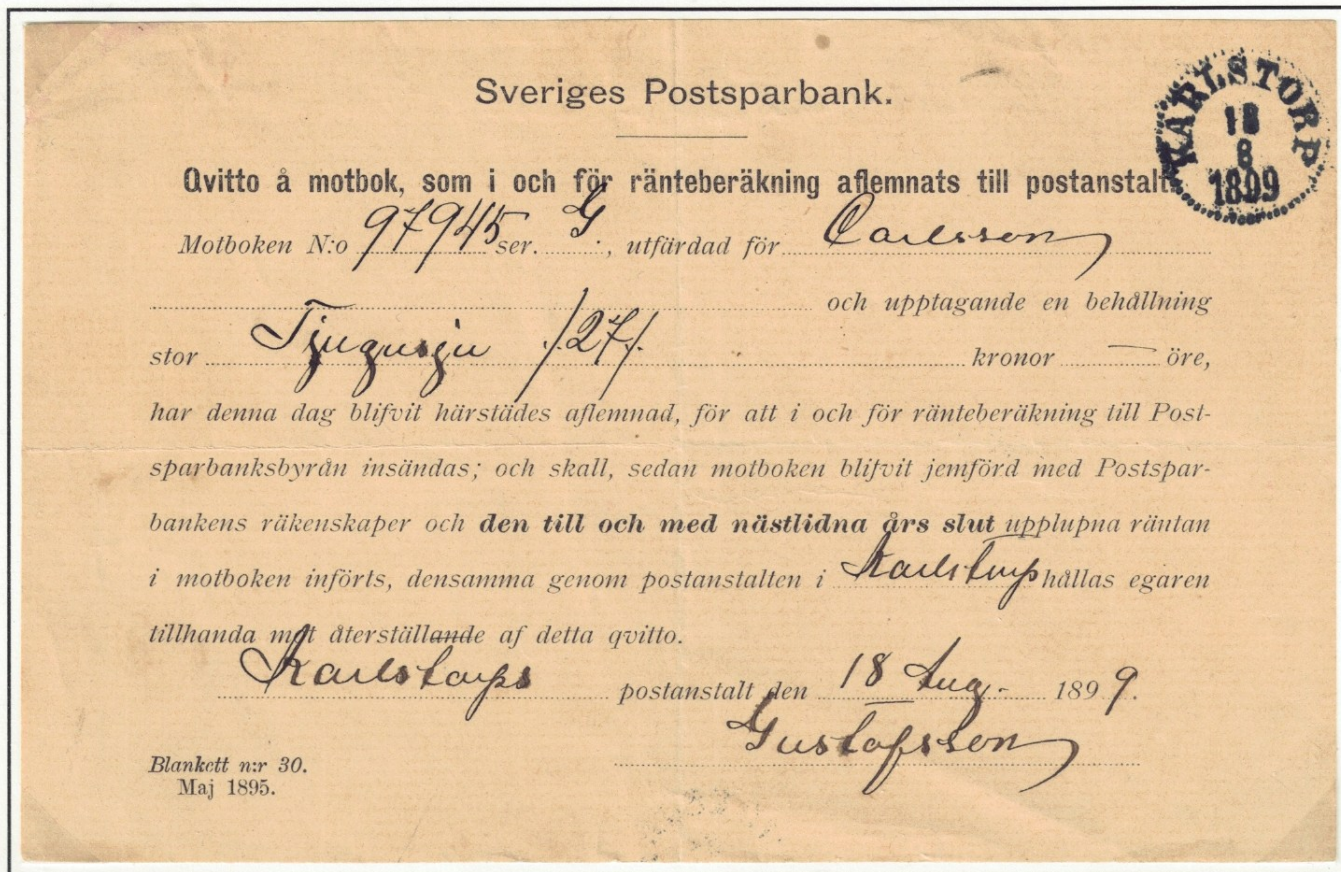 Sveriges Postsparbank.
KARLSTORP
18
8
1899
Qvitto å motbok, som i och för ränteberäkning aflemnats till postanstalt
Motboken N:o 97945 ser. G:, utfärdad för Carlsson
och upptagande en behållning
stor Tjugusju /.27/. kronor — öre,
har denna dag blifvit härstädes aflemnad, för att i och för ränteberäkning till Post-
sparbanksbyrån insändas; och skall, sedan motboken blifvit jemförd med Postspar-
bankens räkenskaper och den till och med nästlidna års slut upplupna räntan
i motboken införts, densamma genom postanstalten i Karlstorp hållas egaren
tillhanda mot återställande af detta qvitto.
Karlstorps postanstalt den 18 Aug. 1899.
Gustafsson
Blankett n:r 30.
Maj 1895.